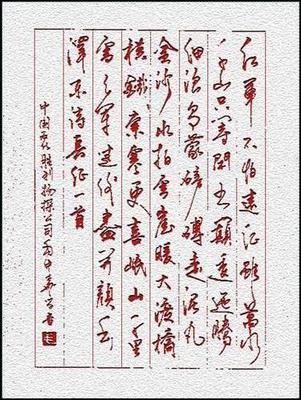 红军不怕遠征難萬水
千山只等閑五嶺逶迤腾
细浪乌蒙磅礴走泥丸
金沙水拍雲崖暖大渡橋
横鐵索寒更喜岷山千里
雪三军过後盡开颜毛
澤东诗長征一首
中国石化胜利物探公司